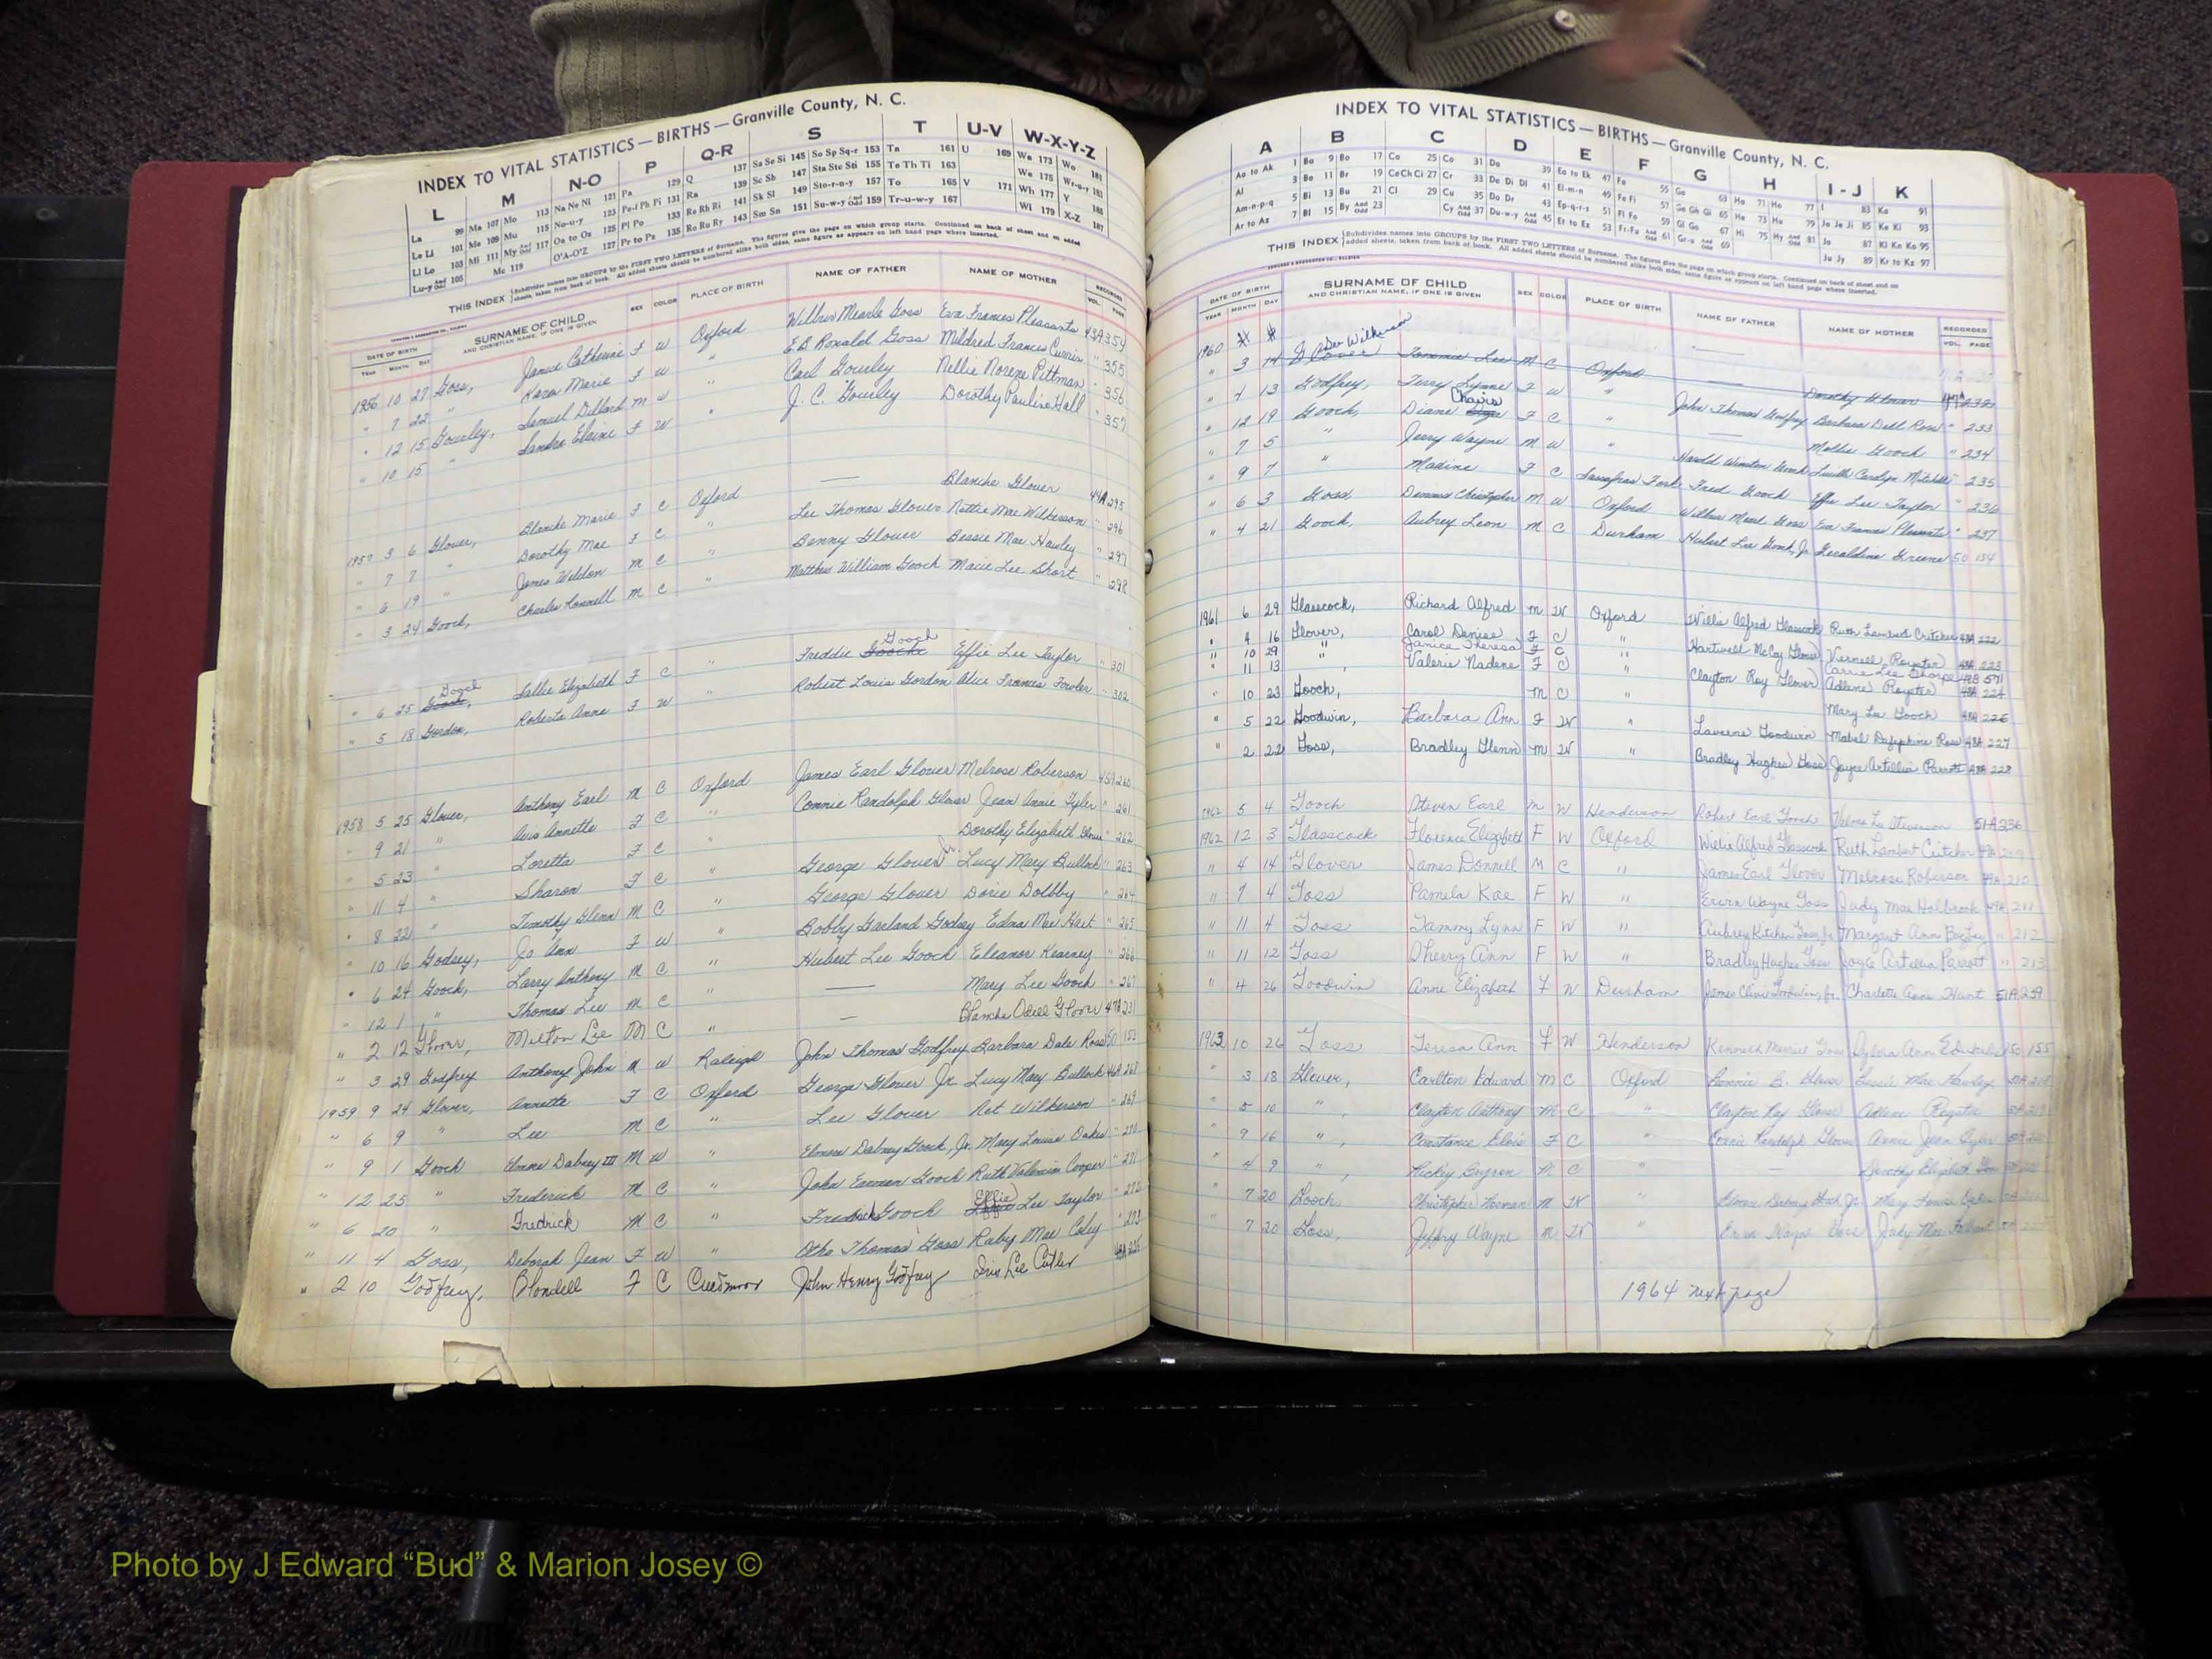 INDEX TO VITAL STATISTICS — BIRTHS — Granville County, N. C.
L M N-O P Q-R S T U-V W-X-Y-Z
La 99 Ma 107 Mo 113 Na Ne Ni 121 Pa 129 Q 137 Sa Se Si 145 So Sp Sq-r 153 Ta 161 U 169 Wa 173 Wo 181
Le Li 101 Me 109 Mu 115 No-u-y 123 Pe-f Ph Pi 131 Ra 139 Sc Sh 147 Sta Ste Sti 155 Te Th Ti 163 We 175 Wr-u-y 183
Ll Lo 103 Mi 111 My And Odd 117 Oa to Oz 125 Pl Po 133 Re Rh Ri 141 Sk Sl 149 Sto-r-n-y 157 To 165 V 171 Wh 177 Y 185
Lu-y And Odd 105 Mc 119 O'A-O'Z 127 Pr to Pz 135 Ro Ru Ry 143 Sm Sn 151 Su-w-y And Odd 159 Tr-u-w-y 167 Wi 179 X-Z 187
THIS INDEX Subdivides names into GROUPS by the FIRST TWO LETTERS of Surname. The figures give the page on which group starts. Continued on back of sheet and on added
sheets, taken from back of book. All added sheets should be numbered alike both sides, same figure as appears on left hand page where inserted.
DATE OF BIRTH YEAR MONTH DAY SURNAME OF CHILD AND CHRISTIAN NAME, IF ONE IS GIVEN SEX COLOR PLACE OF BIRTH NAME OF FATHER NAME OF MOTHER RECORDED VOL. PAGE
1956 10 27 Goss, Janet Catherine F W Oxford Wilbur Mearle Goss Eva Frances Pleasants 43A 354
" 7 22 " Kara Marie F W " E.B. Ronald Goss Mildred Frances Currin " 355
" 12 15 Gourley, Samuel Dillard M W " Carl Gourley Nellie Norene Pittman " 356
" 10 15 " Sandra Elaine F W " J. C. Gourley Dorothy Pauline Hall " 357
1957 3 6 Glover, Blanche Marie F C Oxford — Blanche Glover 44A 295
" 7 7 " Dorothy Mae F C " Lee Thomas Glover Nettie Mae Wilkerson " 296
" 6 19 " James Weldon M C " Benny Glover Bessie Mae Hawley " 297
" 3 24 Gooch, Charles Ronnell M C Matthew William Gooch Macie Lee Short " 298
" 6 25 Gooch, Sallie Elizabeth F C " Freddie Gooch Effie Lee Taylor " 301
" 5 18 Gordon, Roberta Anne F W " Robert Louis Gordon Alice Frances Fowler " 302
1958 5 25 Glover, Anthony Earl M C Oxford James Earl Glover Melrose Roberson 45A 260
" 9 21 " Avis Annette F C " Connie Randolph Glover Jean Annie Tyler " 261
" 5 23 " Loretta F C Dorothy Elizabeth Glover " 262
" 11 4 " Sharon F C " George Glover Jr. Lucy Mary Bullock " 263
" 8 22 " Timothy Glenn M C " George Glover Doris Dolbby " 264
" 10 16 Godsey, Jo Ann F W " Bobby Garland Godsey Edna Mae Hart " 265
" 6 24 Gooch, Larry Anthony M C " Hubert Lee Gooch Eleanor Kearney " 266
" 12 1 " Thomas Lee M C " — Mary Lee Gooch " 267
" 2 12 Glover, Milton Lee M C " — Blanche Odell Glover 47A 231
" 3 29 Godfrey Anthony John M W Raleigh John Thomas Godfrey Barbara Dale Ross 50 153
1959 9 24 Glover, Annette F C Oxford George Glover Jr. Lucy Mary Bullock 46A 268
" 6 9 " Lee M C " Lee Glover Net Wilkerson " 269
" 9 1 Gooch Elmore Dabney III M W " Elmore Dabney Gooch, Jr. Mary Louise Oakes " 270
" 12 25 " Frederick M C " John Eamon Gooch Ruth Valencia Cooper " 271
" 6 20 " Fredrick M C " Fredrick Gooch Effie Lee Taylor " 272
" 11 4 Goss, Deborah Jean F W " Otho Thomas Goss Ruby Mae Coley " 273
" 2 10 Godfrey, Blondell F C Creedmoor John Henry Godfrey Iris Lee Cutler 48A 225
INDEX TO VITAL STATISTICS — BIRTHS — Granville County, N. C.
A B C D E F G H I-J K
Aa to Ak 1 Ba 9 Bo 17 Ca 25 Co 31 Da 39 Ea to Ek 47 Fa 55 Ga 63 Ha 71 Ho 77 I 83 Ka 91
Al 3 Be 11 Br 19 Ce Ch Ci 27 Cr 33 De Di Dl 41 El-m-n 49 Fe Fi 57 Ge Gh Gi 65 He 73 Hu 79 Ja Je Ji 85 Ke Ki 93
Am-n-p-q 5 Bi 13 Bu 21 Cl 29 Cu 35 Do Dr 43 Ep-q-r-s 51 Fl Fo 59 Gl Go 67 Hi 75 Hy And Odd 81 Jo 87 Kl Kn Ko 95
Ar to Az 7 Bl 15 By And Odd 23 Cy And Odd 37 Du-w-y And Odd 45 Et to Ez 53 Fr-Fu And Odd 61 Gr-u And Odd 69 Ju Jy 89 Kr to Kz 97
THIS INDEX Subdivides names into GROUPS by the FIRST TWO LETTERS of Surname. The figures give the page on which group starts. Continued on back of sheet and on
added sheets, taken from back of book. All added sheets should be numbered alike both sides, same figure as appears on left hand page where inserted.
DATE OF BIRTH YEAR MONTH DAY SURNAME OF CHILD AND CHRISTIAN NAME, IF ONE IS GIVEN SEX COLOR PLACE OF BIRTH NAME OF FATHER NAME OF MOTHER RECORDED VOL. PAGE
See Wilkerson
1960 3 14 Glover Tommie Lee M C Oxford — Dorothy Glover 47A 232
" 4 13 Godfrey, Terry Lynne F W " John Thomas Godfrey Barbara Dell Ross " 233
" 12 19 Gooch, Diane Chairs F C " — Mollie Gooch " 234
" 7 5 " Jerry Wayne M W " Harold Winston Gooch Lucille Carolyn Mitchell " 235
" 9 7 " Madine F C Sassafras Fork Fred Gooch Effie Lee Taylor " 236
" 6 3 Goss Dennis Christopher M W Oxford Wilbur Mearl Goss Eva Frances Pleasants " 237
" 4 21 Gooch, Aubrey Leon M C Durham Hubert Lee Gooch, Jr. Geraldine Greene 50 154
1961 6 29 Glasscock, Richard Alfred M W Oxford Willis Alfred Glasscock Ruth Lambert Critcher 48A 222
" 4 16 Glover, Carol Denise F C " Hartwell McCoy Glover Viernell Royster 48A 223
" 10 29 " Janice Theresa F C " Carrie Lee Thorpe 49B 571
" 11 13 " Valerie Nadene F C " Clayton Roy Glover Adlene Royster 48A 224
" 10 23 Gooch, M C " Mary Lee Gooch 48A 226
" 5 22 Goodwin, Barbara Ann F W " Laverne Goodwin Mabel Dafephine Ross 48A 227
" 2 22 Goss, Bradley Glenn M W " Bradley Hughes Goss Joyce Artillia Parrott 48A 228
1962 5 4 Gooch Steven Earl M W Henderson Robert Earl Gooch Velma Lu Stevenson 51A 236
1962 12 3 Glasscock Florence Elizabeth F W Oxford Willie Alfred Glasscock Ruth Lambert Critcher 49A 209
" 4 14 Glover James Donnell M C " James Earl Glover Melrose Roberson 49A 210
" 7 4 Goss Pamela Kae F W " Ervin Wayne Goss Judy Mae Holbrook 49A 211
" 11 4 Goss Tammy Lynn F W " Aubrey Kitchen Goss, Jr. Margaret Ann " 212
" 11 12 Goss Sherry Ann F W " Bradley Hughes Goss Joyce Artillia Parrott " 213
" 4 26 Goodwin Anne Elizabeth F W Durham James Cline Goodwin, Jr. Charlotte Ann Hunt 51A 239
1963 10 26 Goss Teresa Ann F W Henderson Kenneth Merritt Goss Sylvia Ann 50 155
" 3 18 Glover, Carlton Edward M C Oxford Bennie B. Glover Bessie Mae Hawley
" 5 10 " , Clayton Anthony M C " Clayton Ray Glover Adlene Royster
" 9 16 " , Constance Elvis F C " Connie Randolph Glover Annie Jean Tyler
" 4 9 " , Rickey Byron M C " Dorothy Elizabeth
" 7 20 Gooch, Christopher Norman M W " Elmore Dabney Gooch, Jr. Mary Louise Oakes
" 7 20 Goss, Jeffery Wayne M W " Ervin Wayne Goss Judy Mae
1964 next page
Photo by J Edward “Bud” & Marion Josey ©